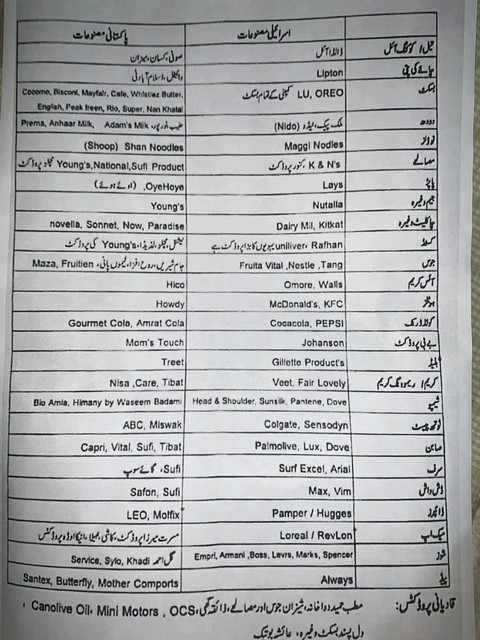 پاکستانی مصنوعات اسرائیلی مصنوعات
تیل / کوکنگ آئل ڈالڈا آئل صوفی، کسان، میزان
چائے کی پتی Lipton وائٹل، اسلام آباد ٹی
بسکٹ LU, OREO کمپنی کے تمام بسکٹ Cocomo, Bisconi, Mayfair, Cafe, Whistlez Butter,
English, Peak freen, Rio, Super, Nan Khatai
دودھ ملک پیک، نیڈو (Nido) Prema, Anhaar Milk, Adam's Milk طیب، نور پور
نوڈلز Maggi Nodles (Shoop) Shan Noodles
مصالحے K & N's، کنور پروڈکٹ Young's,National,Sufi Product
پاپڑ Lays OyeHoye, (اوئے ہوئے)
جیم وغیرہ Nutalla Young's
چاکلیٹ وغیرہ Dairy Mil, Kitkat novella, Sonnet, Now, Paradise
univer, Rafhan یہودیوں کا بڑا پروڈکٹ ہے Young's کی پروڈکٹ
جوس Fruita Vital ,Nestle ,Tang Maza, Fruitien جام شیریں، روح افزا، لیموں پانی،
آئس کریم Omore, Walls Hico
ہوٹلز McDonald's, KFC Howdy
کولڈ ڈرنک Cocacola, PEPSI Gourmet Cola, Amrat Cola
بے بی پروڈکٹ Johanson Mom's Touch
بلیڈ Gillette Product's Treet
کریم / ریموونگ کریم Veet, Fair Lovely Nisa ,Care, Tibat
شیمپو Head & Shoulder, Sunsilk, Pantene, Dove Bio Amla, Himany by Waseem Badami
ٹوتھ پیسٹ Colgate, Sensodyn ABC, Miswak
صابن Palmolive, Lux, Dove Capri, Vital, Sufi, Tibat
سرف Surf Excel, Arial Sufi، گائے سوپ
ڈش واش Max, Vim Safon, Sufi
ڈائپرز Pamper / Hugges LEO, Molfix
میک اپ Loreal / RevLon مسرت مصباح پروڈکٹ، کاشی،
شوز Empri, Armani ,Boss, Levrs, Marks, Spencer Service, Sylo, Khadi گل احمد
پیڈ Always Santex, Butterfly, Mother Comports
قادیانی پروڈکٹس: مطب حمید دواخانہ، شیزان جوس اور مصالحے، ذائقہ گھی، Canolive Oil، Mini Motors ,OCS،
دل پسند بسکٹ وغیرہ، عائشہ بوتیک